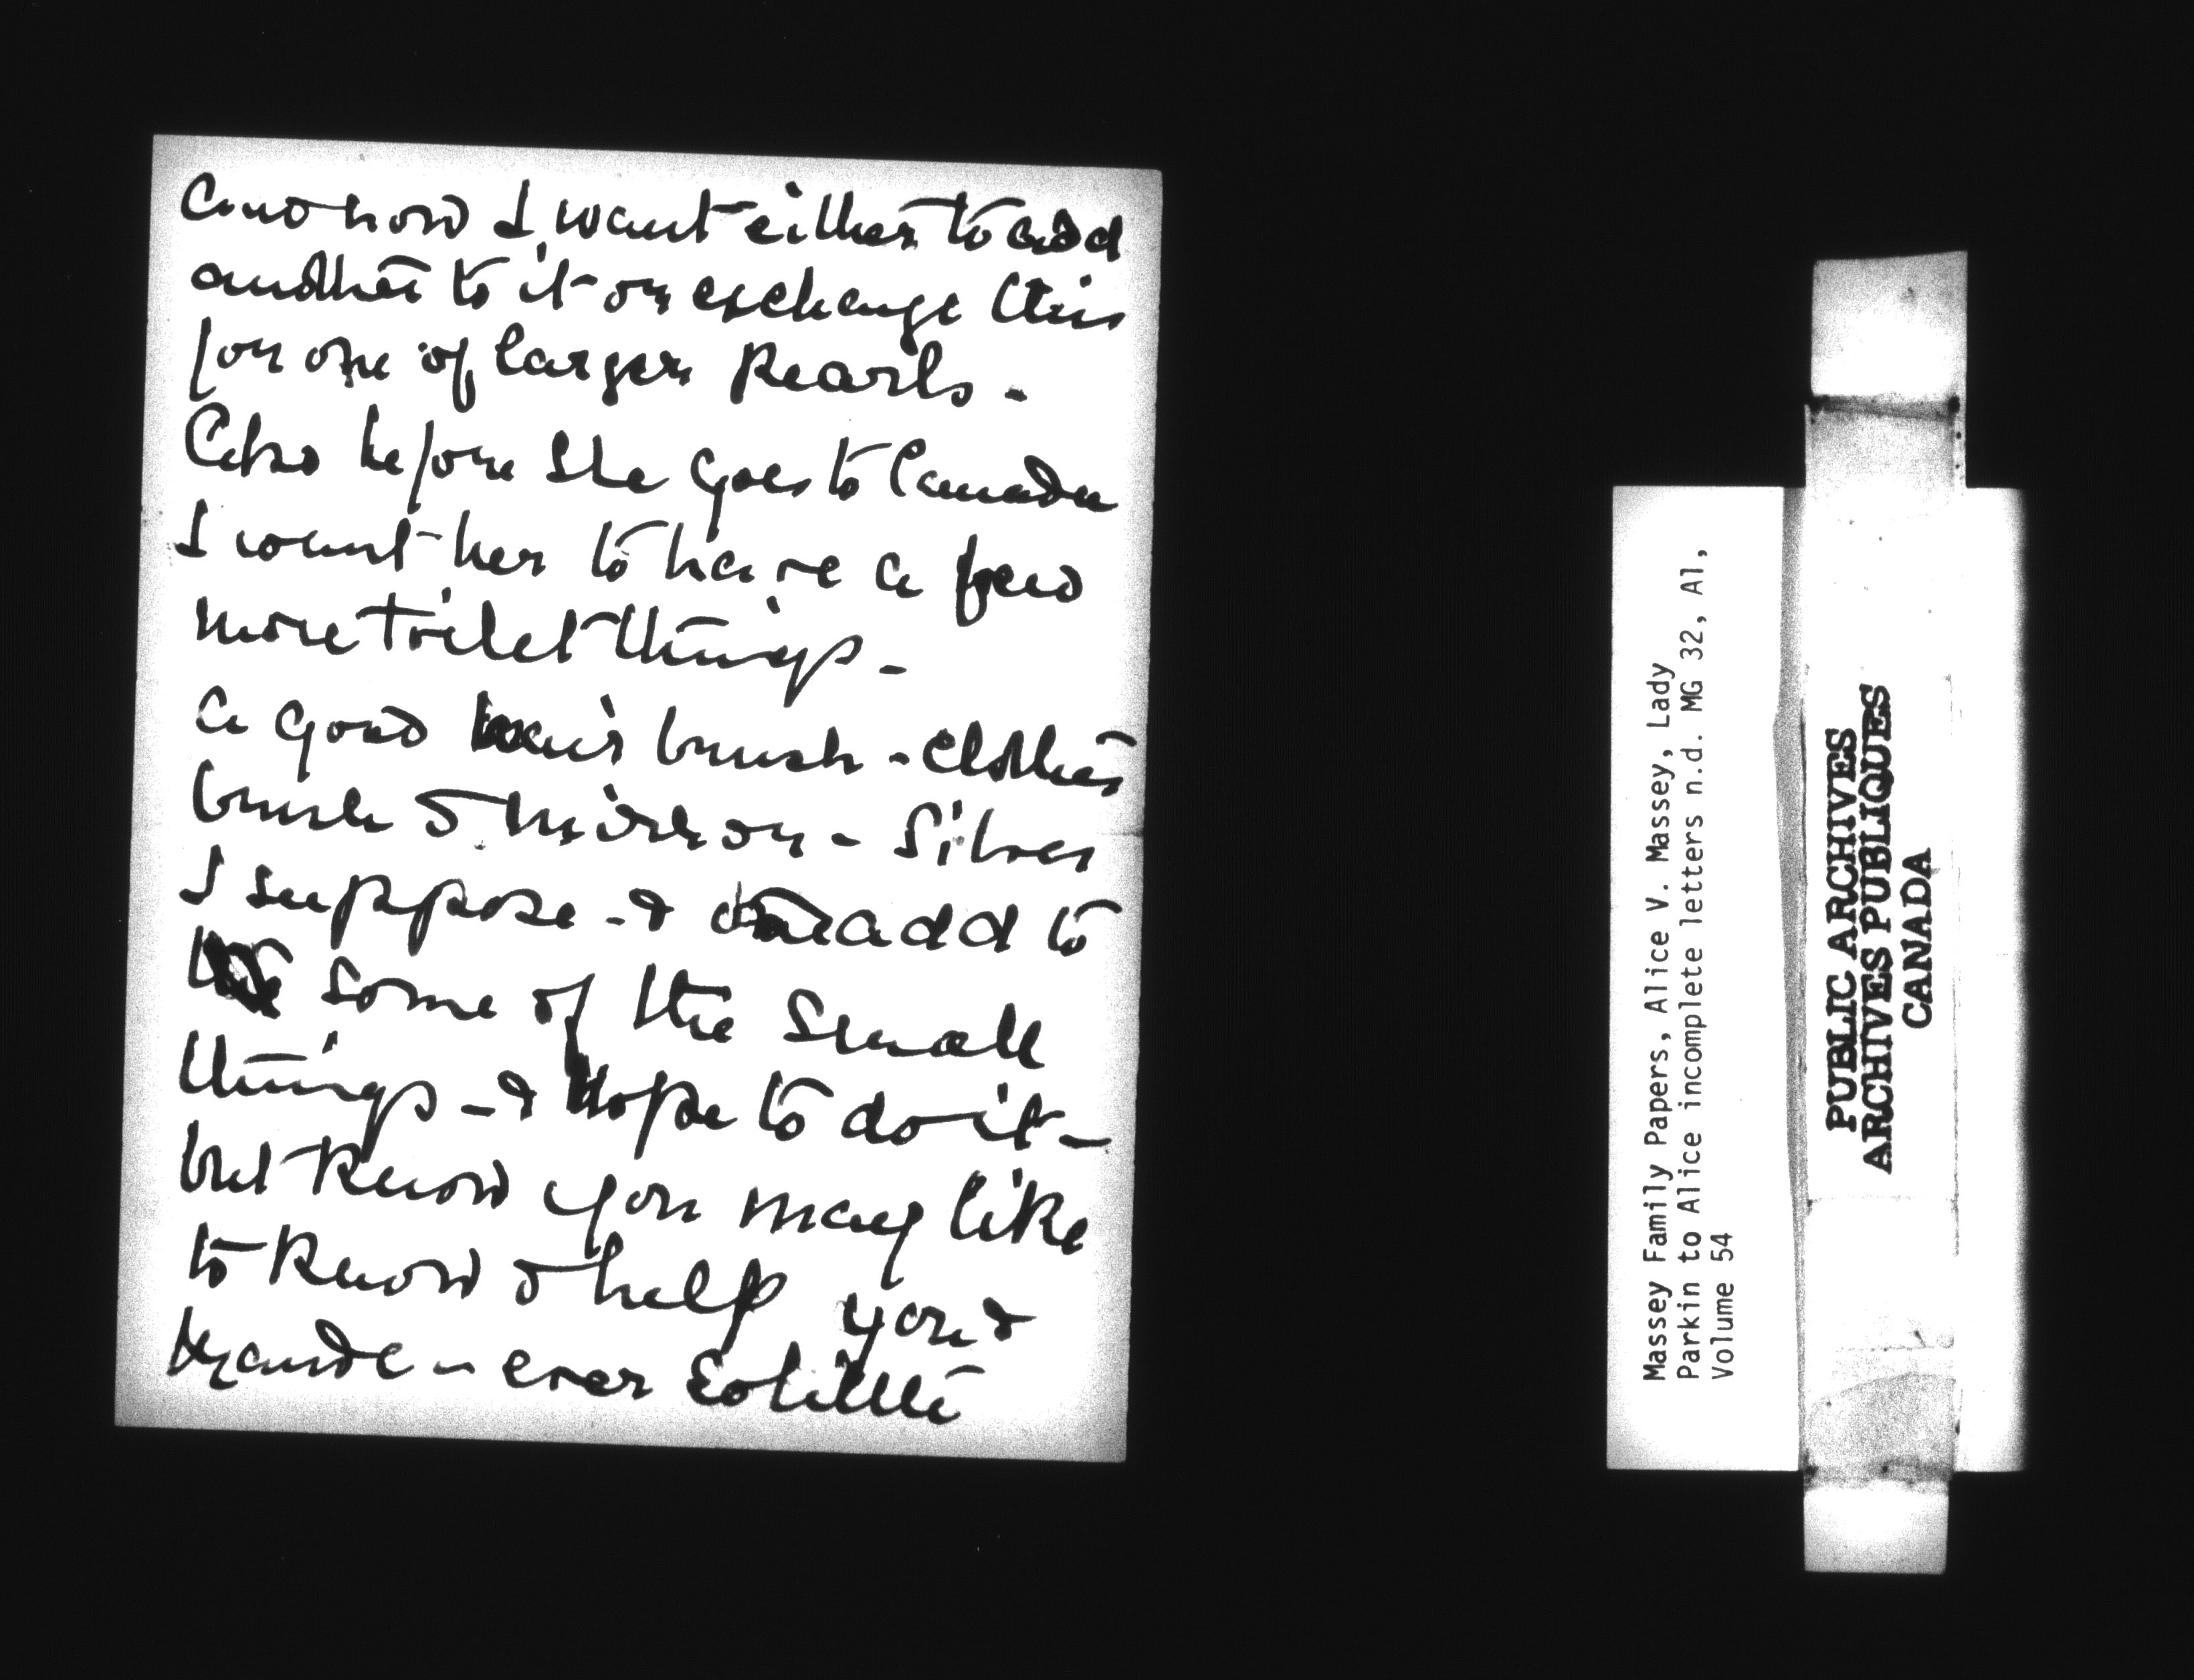 And now I want either to add
another to it or exchange this
for one of larger Pearls -
Also before she goes to Canada
I want her to have a few
more toilet things -
a good hair brush - clothes
brush & mirror - Silver
I suppose - & add to
some of the small
things - & Hope to do it -
but know you may like
to know & help you &
Maude - ever
Massey Family Papers, Alice V. Massey, Lady
Parkin to Alice incomplete letters n.d. MG 32, A1,
Volume 54
PUBLIC ARCHIVES
ARCHIVES PUBLIQUES
CANADA